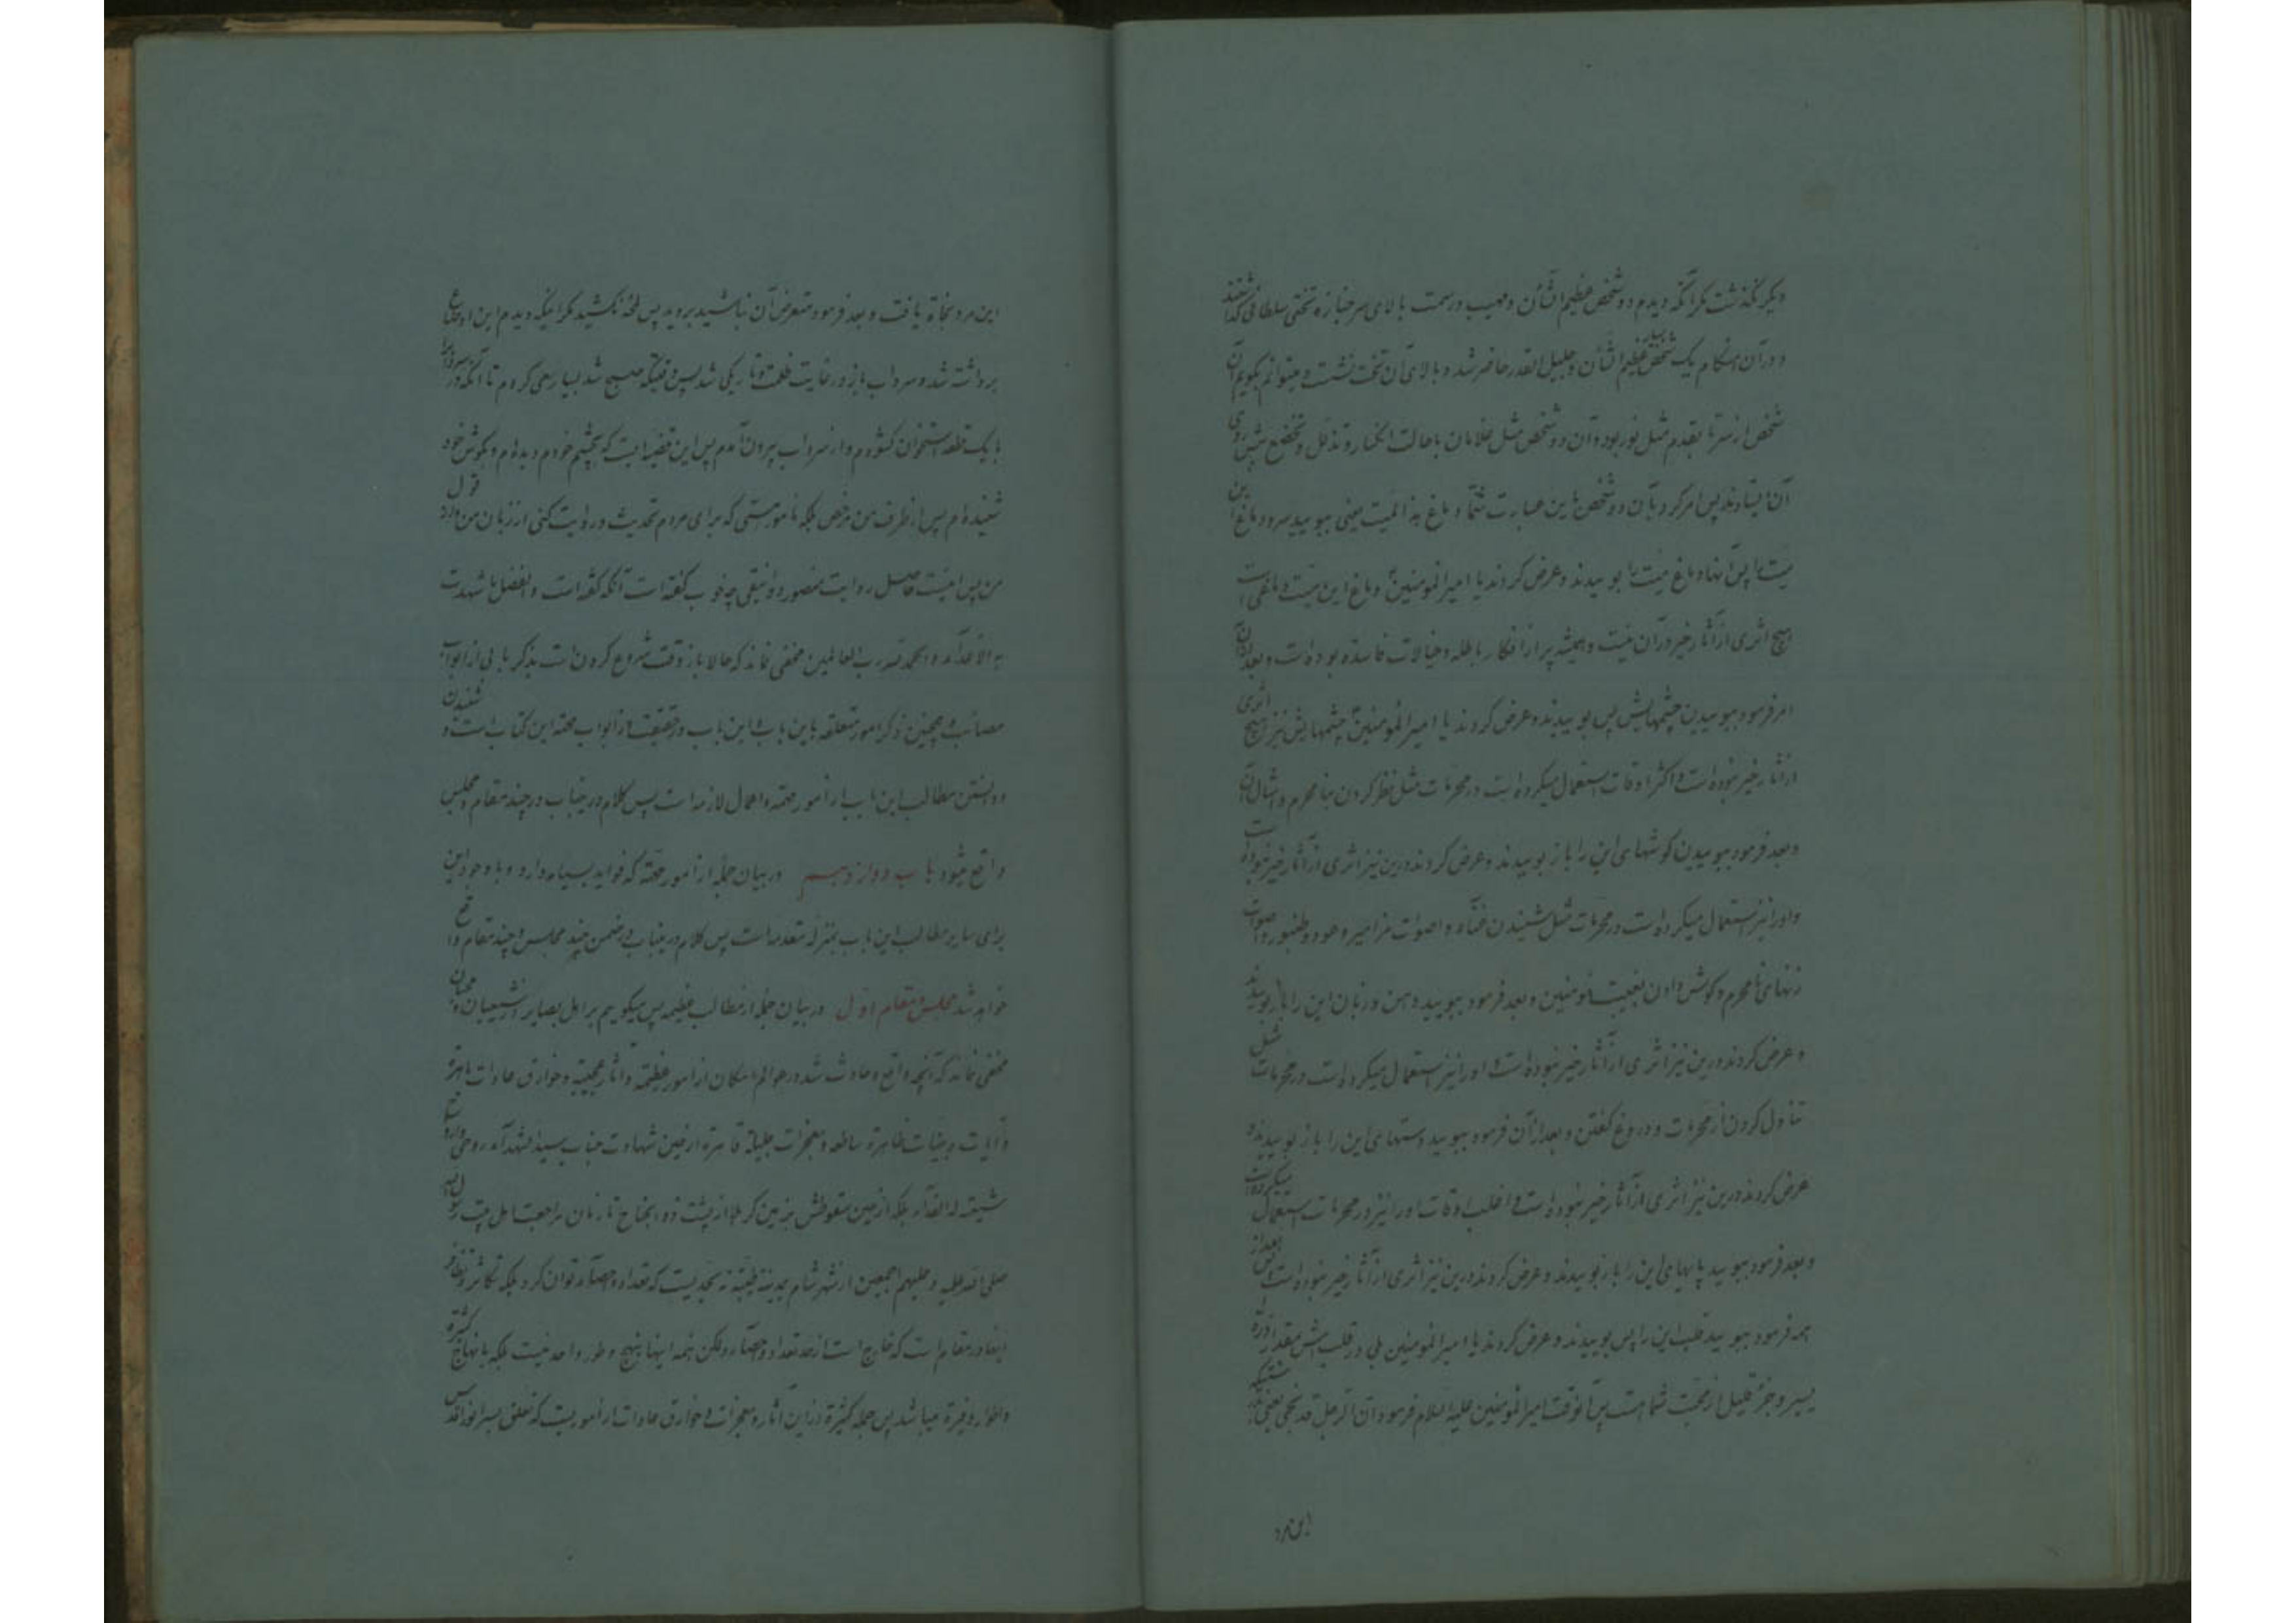 دیگر نگذشت مگر آنکه دیدم دو شخص عظیم الشأن و مهیب در سمت بالای سر جنازه تختی سلطانی گذاشتند
و در آن هنگام یک شخص بسیار عظیم الشأن و جلیل القدر حاضر شد و بالای آن تخت نشست و میتوانم بگویم آن
شخص از سر تا بقدم مثل نور بود و آن دو شخص مثل غلامان با حالت انکسار و تذلل و تخضع پیش روی
آن ایستادند پس امر کرد بآن دو شخص باین عبارت شما دماغ هذا المیت یعنی ببویید سر و دماغ این
میت را پس آنها دماغ میت را بوییدند و عرض کردند یا امیر المومنین دماغ این میت
هیچ اثری از آثار خیر در آن نیست و همیشه پر از افکار باطله و خیالات فاسده بوده است و بعد از آن
امر فرمود ببوییدن چشمهایش پس بوییدند و عرض کردند یا امیر المومنین چشمهایش نیز هیچ اثری
از آثار خیر نبوده است و اکثر اوقات استعمال میکرده است در محرمات مثل نظر کردن بنا محرم و امثال آن
و بعد فرمود ببوییدن گوشهای این را باز بوییدند و عرض کردند درین نیز اثری از آثار خیر نبوده است
و او را نیز استعمال میکرده است در محرمات مثل شنیدن غناء و اصوات مزامیر و عود و طنبور و اصوات
زنهای نامحرم و گوش دادن بغیبت مومنین و بعد فرمود ببویید دهن و زبان این را باز بوییدند
و عرض کردند درین نیز اثری از آثار خیر نبوده است و او را نیز استعمال میکرده است در محرمات مثل
تناول کردن از محرمات و دروغ گفتن و بعد از آن فرمود ببویید دستهای این را باز بوییدند و
عرض کردند درین نیز اثری از آثار خیر نبوده است و اغلب اوقات او را نیز در محرمات استعمال میکرده است
و بعد فرمود ببویید پاهای این را باز بوییدند و عرض کردند درین نیز اثری از آثار خیر نبوده است پس بعد از
همه فرمود ببویید قلب این را پس بوییدند و عرض کردند یا امیر المومنین بلی در قلبش مقدار ذره
یسیر و جزء قلیل از محبت شما هست پس آنوقت امیر المومنین علیه السلام فرمود ان الرجل قد نجی یعنی
این مرد
این مرد نجاة یافت و بعد فرمود متعرض آن نباشید بروید پس لحظه نکشید مگر اینکه دیدم این اوضاع
برداشته شد و سرداب باز در غایت ظلمت و تاریکی شد پس وقتیکه صبح شد بسیار سعی کردم تا آنکه در سرداب را
با یک قطعه استخوان گشودم و از سرداب بیرون آمدم پس این قضیه ایست که بچشم خودم دیده ام و بگوش خود
شنیده ام پس از طرف من مرخص بلکه مامور هستی که برای مردم تحدیث و روایت کنی از زبان من و از قول
من پس اینست حاصل روایت منصور دوانیقی چه خوب گفته است آنکه گفته است و الفضل ما شهدت
به الاعداء و الحمد لله رب العالمین مخفی نماند که حالا باز وقت شروع کردن است بذکر بابی از ابواب
مصائب و همچنین ذکر امور متعلقه باین باب و این باب در حقیقت از ابواب مهمه این کتاب است و شنیدن
و دانستن مطالب این باب از امور مهمه و اعمال لازمه است پس کلام درینباب در چند مقام و مجلس
واقع میشود باب دوازدهم در بیان جمله از امور حقه که فواید بسیار دارد و با وجود این
برای سایر مطالب این باب بمنزله مقدمه است پس کلام درینباب در ضمن چند مجلس و چند مقام واقع
خواهد شد مجلس و مقام اول در بیان جمله از مطالب عظیمه پس میگویم بر اهل بصایر از شیعیان و محبان
مخفی نماند که آنچه واقع و حادث شد در عوالم امکان از امور عظیمه و آثار عجیبه و خوارق عادات باهره
و آیات و بینات ظاهره ساطعه و معجزات جلیله قاهره از حین شهادت جناب سید الشهداء روحی و ارواح
شیعته له الفداء بلکه از حین سقوطش بزمین کربلا از پشت ذو الجناح تا زمان مراجعت اهل بیت رسول الله
صلی الله علیه و علیهم اجمعین از شهر شام بمدینه طیبه نه بحدیست که تعداد و احصاء توان کرد بلکه تکاثر و تظافر
اینها در مقام است که خارج است از حد تعداد و احصاء ولکن همه اینها بنهج و طور واحد نیست بلکه بانهاج کثیره
و اطوار وفیره میباشد پس جمله کثیرة از این آثار و معجزات و خوارق عادات از اموریست که تعلق بسر انور اقدس